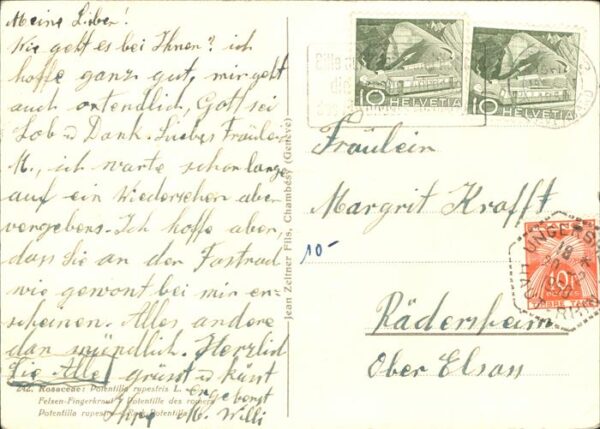 Meine Lieber!
Wie geht es bei Ihnen? ich
hoffe ganz gut, mir geht
auch ortendlich, Gott sei
Lob u Dank. Liebes Fräulein
M., ich warte schon lange
auf ein Wiedersehen aber
vergebens. Ich hoffe aber,
dass Sie an der Fastnad
wie gewont bei mir er-
scheinen. Alles andere
dan mündlich. Herzlich
Sie Alle grüsst u küsst
Ihrer ergebenst
M. Willi
242. Rosaceae: Potentilla rupestris L.
Felsen-Fingerkraut
Potentille des rochers
Potentilla rupestre
Rock Potentilla
Jean Zeltner Fils, Chambésy (Genève)
10 HELVETIA
10 HELVETIA
Fräulein
Margrit Krafft
10-
UNGERSH
18
HAUT-RHIN
10F
Rädersheim
Ober Elsass